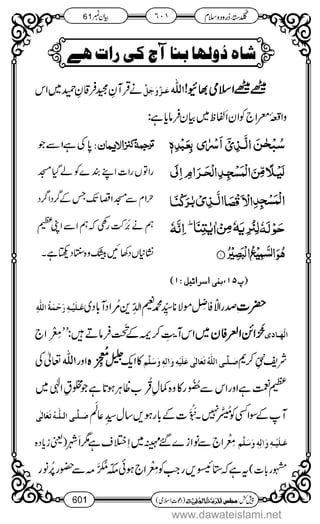 گلدستۂ درود و سلام ۶۰۱ بیان نمبر 61
شاہ دُولھا بنا آج کی رات ھے
میٹھے میٹھے اسلامی بھائیو! اللّٰہ عَزَّوَجَلَّ نے قرآنِ مجید فرقانِ حمید میں اس
واقعۂ معراج کو ان الفاظ میں بیان فرمایا ہے:
سُبْحٰنَ الَّذِیْۤ اَسْرٰى بِعَبْدِهٖ ترجَمۂ کنز الایمان: پاکی ہے اسے جو
لَیْلًا مِّنَ الْمَسْجِدِ الْحَرَامِ اِلَى اپنے بندے کو راتوں رات لے گیا مسجد
الْمَسْجِدِ الْاَقْصَا الَّذِیْ بٰرَكْنَا حرام سے مسجد اقصا تک جس کے گردا گرد
حَوْلَهٗ لِنُرِیَهٗ مِنْ اٰیٰتِنَاؕ-اِنَّهٗ ہم نے برکت رکھی کہ ہم اسے اپنی عظیم
هُوَ السَّمِیْعُ الْبَصِیْرُ۝۱ نشانیاں دکھائیں بیشک وہ سنتا دیکھتا ہے۔
(پ۱۵، بنی اسرائیل: ۱)
حضرت صدرُ الافاضل مولانا سیّد محمد نعیم الدین مُراد آبادی عَلَیْہِ رَحْمَۃُ اللّٰہِ
الْھَادِی خزائنُ العرفان میں اس آیتِ کریمہ کے تحت فرماتے ہیں: ”معراج
شریف نبی کریم صَلَّی اللّٰہُ تَعَالٰی عَلَیْہِ وَاٰلِہٖ وَسَلَّم کا ایک جلیل معجزہ اور اللّٰہ تعالٰی کی
عظیم نعمت ہے اور اس سے حضور کا وہ کمالِ قرب ظاہر ہوتا ہے جو مخلوقِ الٰہی میں
آپ کے سوا کسی کو میسر نہیں۔ نبوّت کے بارہویں سال سیدِ عالَم صَلَّی اللّٰہُ تَعَالٰی
عَلَیْہِ وَاٰلِہٖ وَسَلَّم معراج سے نوازے گئے مہینہ میں اختلاف ہے مگر اشہر (یعنی زیادہ
مشہور بات) یہ ہے کہ ستائیسویں رجب کو معراج ہوئی مکّہ مکرّمہ سے حضور پُر نور
601
www.dawateislami.net